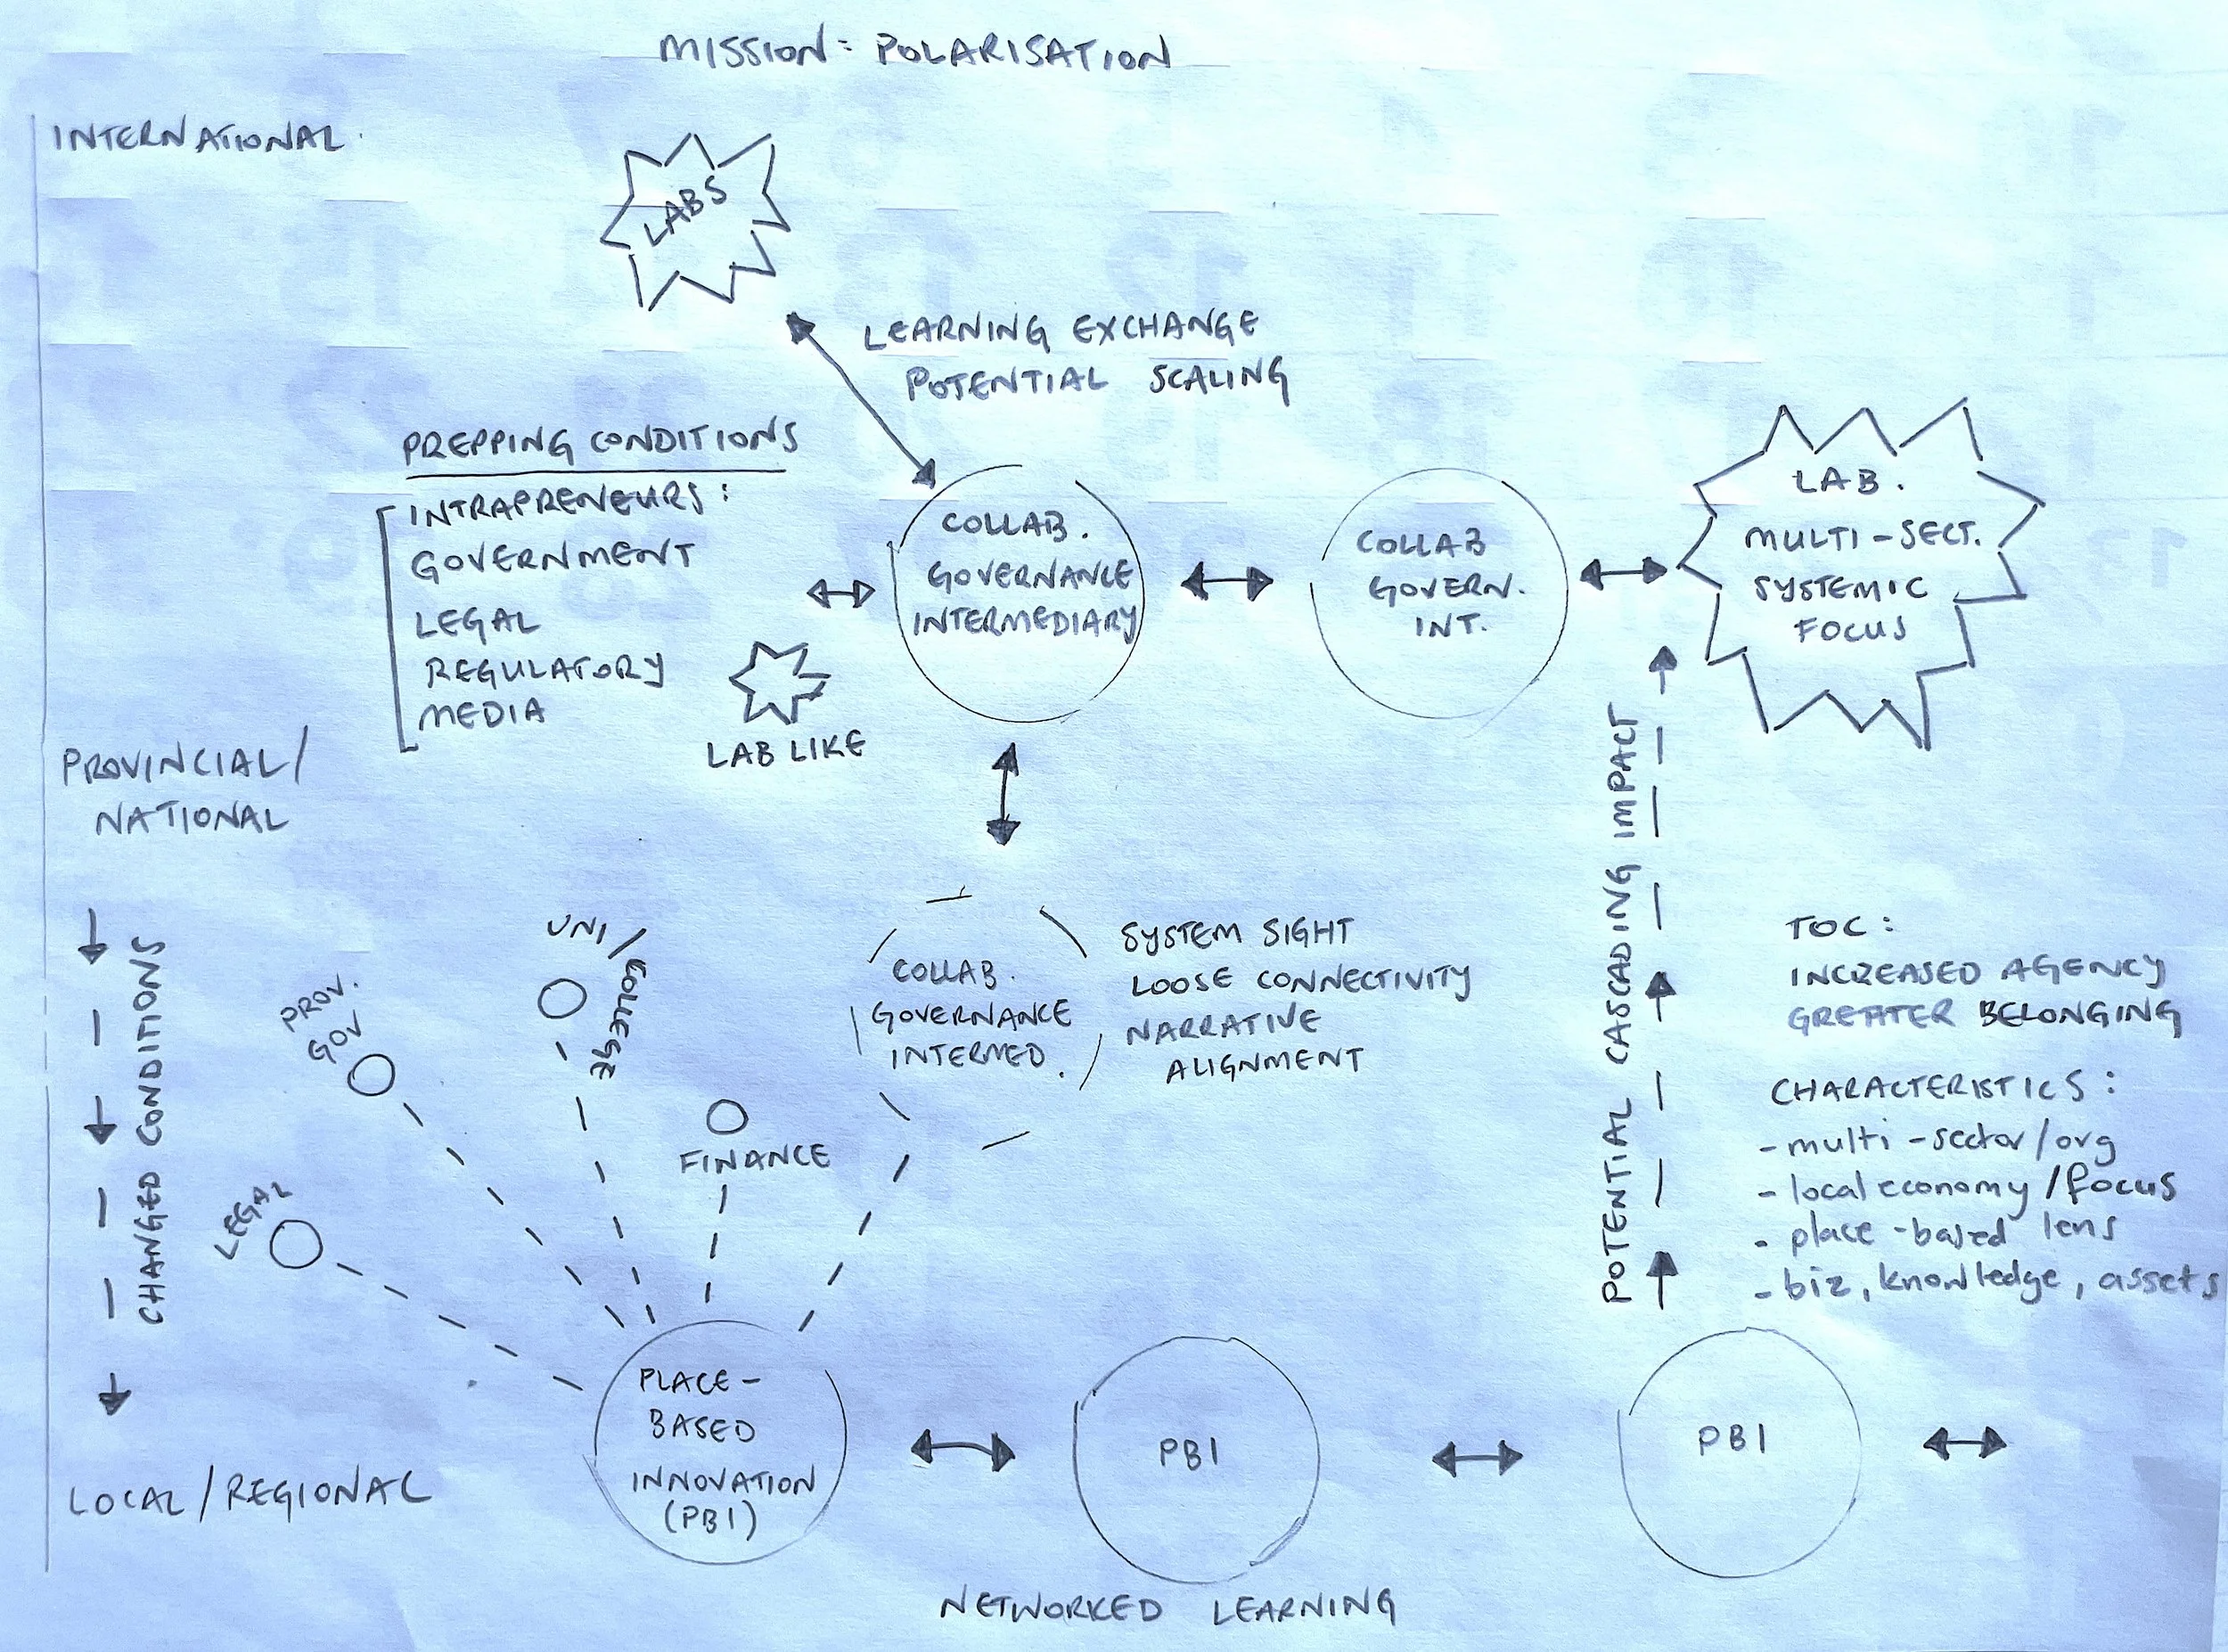 MISSION: POLARISATION
INTERNATIONAL.
LABS
LEARNING EXCHANGE
POTENTIAL SCALING
PREPPING CONDITIONS
INTRAPRENEURS:
GOVERNMENT
LEGAL
REGULATORY
MEDIA
LAB LIKE
COLLAB.
GOVERNANCE
INTERMEDIARY
COLLAB
GOVERN.
INT.
LAB.
MULTI-SECT.
SYSTEMIC
FOCUS
PROVINCIAL/
NATIONAL
CHANGED CONDITIONS
PROV.
GOV
UNI/
COLLEGE
LEGAL
FINANCE
COLLAB.
GOVERNANCE
INTERMED.
SYSTEM SIGHT
LOOSE CONNECTIVITY
NARRATIVE
ALIGNMENT
POTENTIAL CASCADING IMPACT
TOC:
INCREASED AGENCY
GREATER BELONGING
CHARACTERISTICS:
- multi-sector/org
- local economy/focus
- place-based lens
- biz, knowledge, assets
LOCAL/REGIONAL
PLACE-
BASED
INNOVATION
(PBI)
PBI
PBI
NETWORKED LEARNING